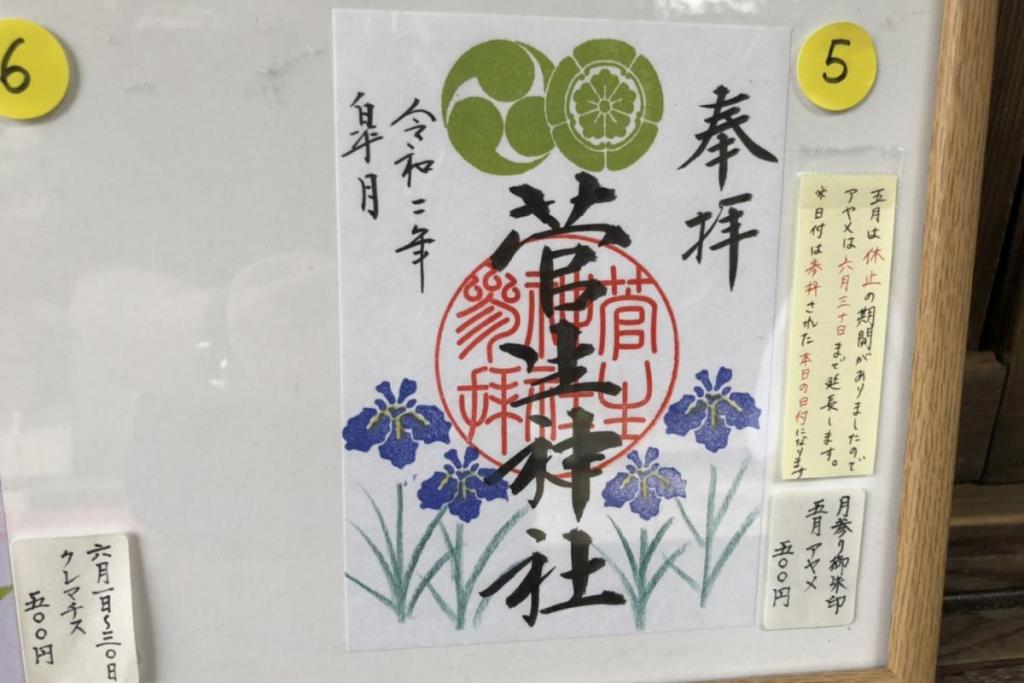 5
奉拝
菅生神社
令和二年
皐月
菅生
神社
参拝
五月は休止の期間がありましたので
アヤメは六月三十日まで延長します。
※日付は参拝された本日の日付になります
月参り御朱印
五月 アヤメ
五〇〇円
6
六月一日～三〇日
クレマチス
五〇〇円